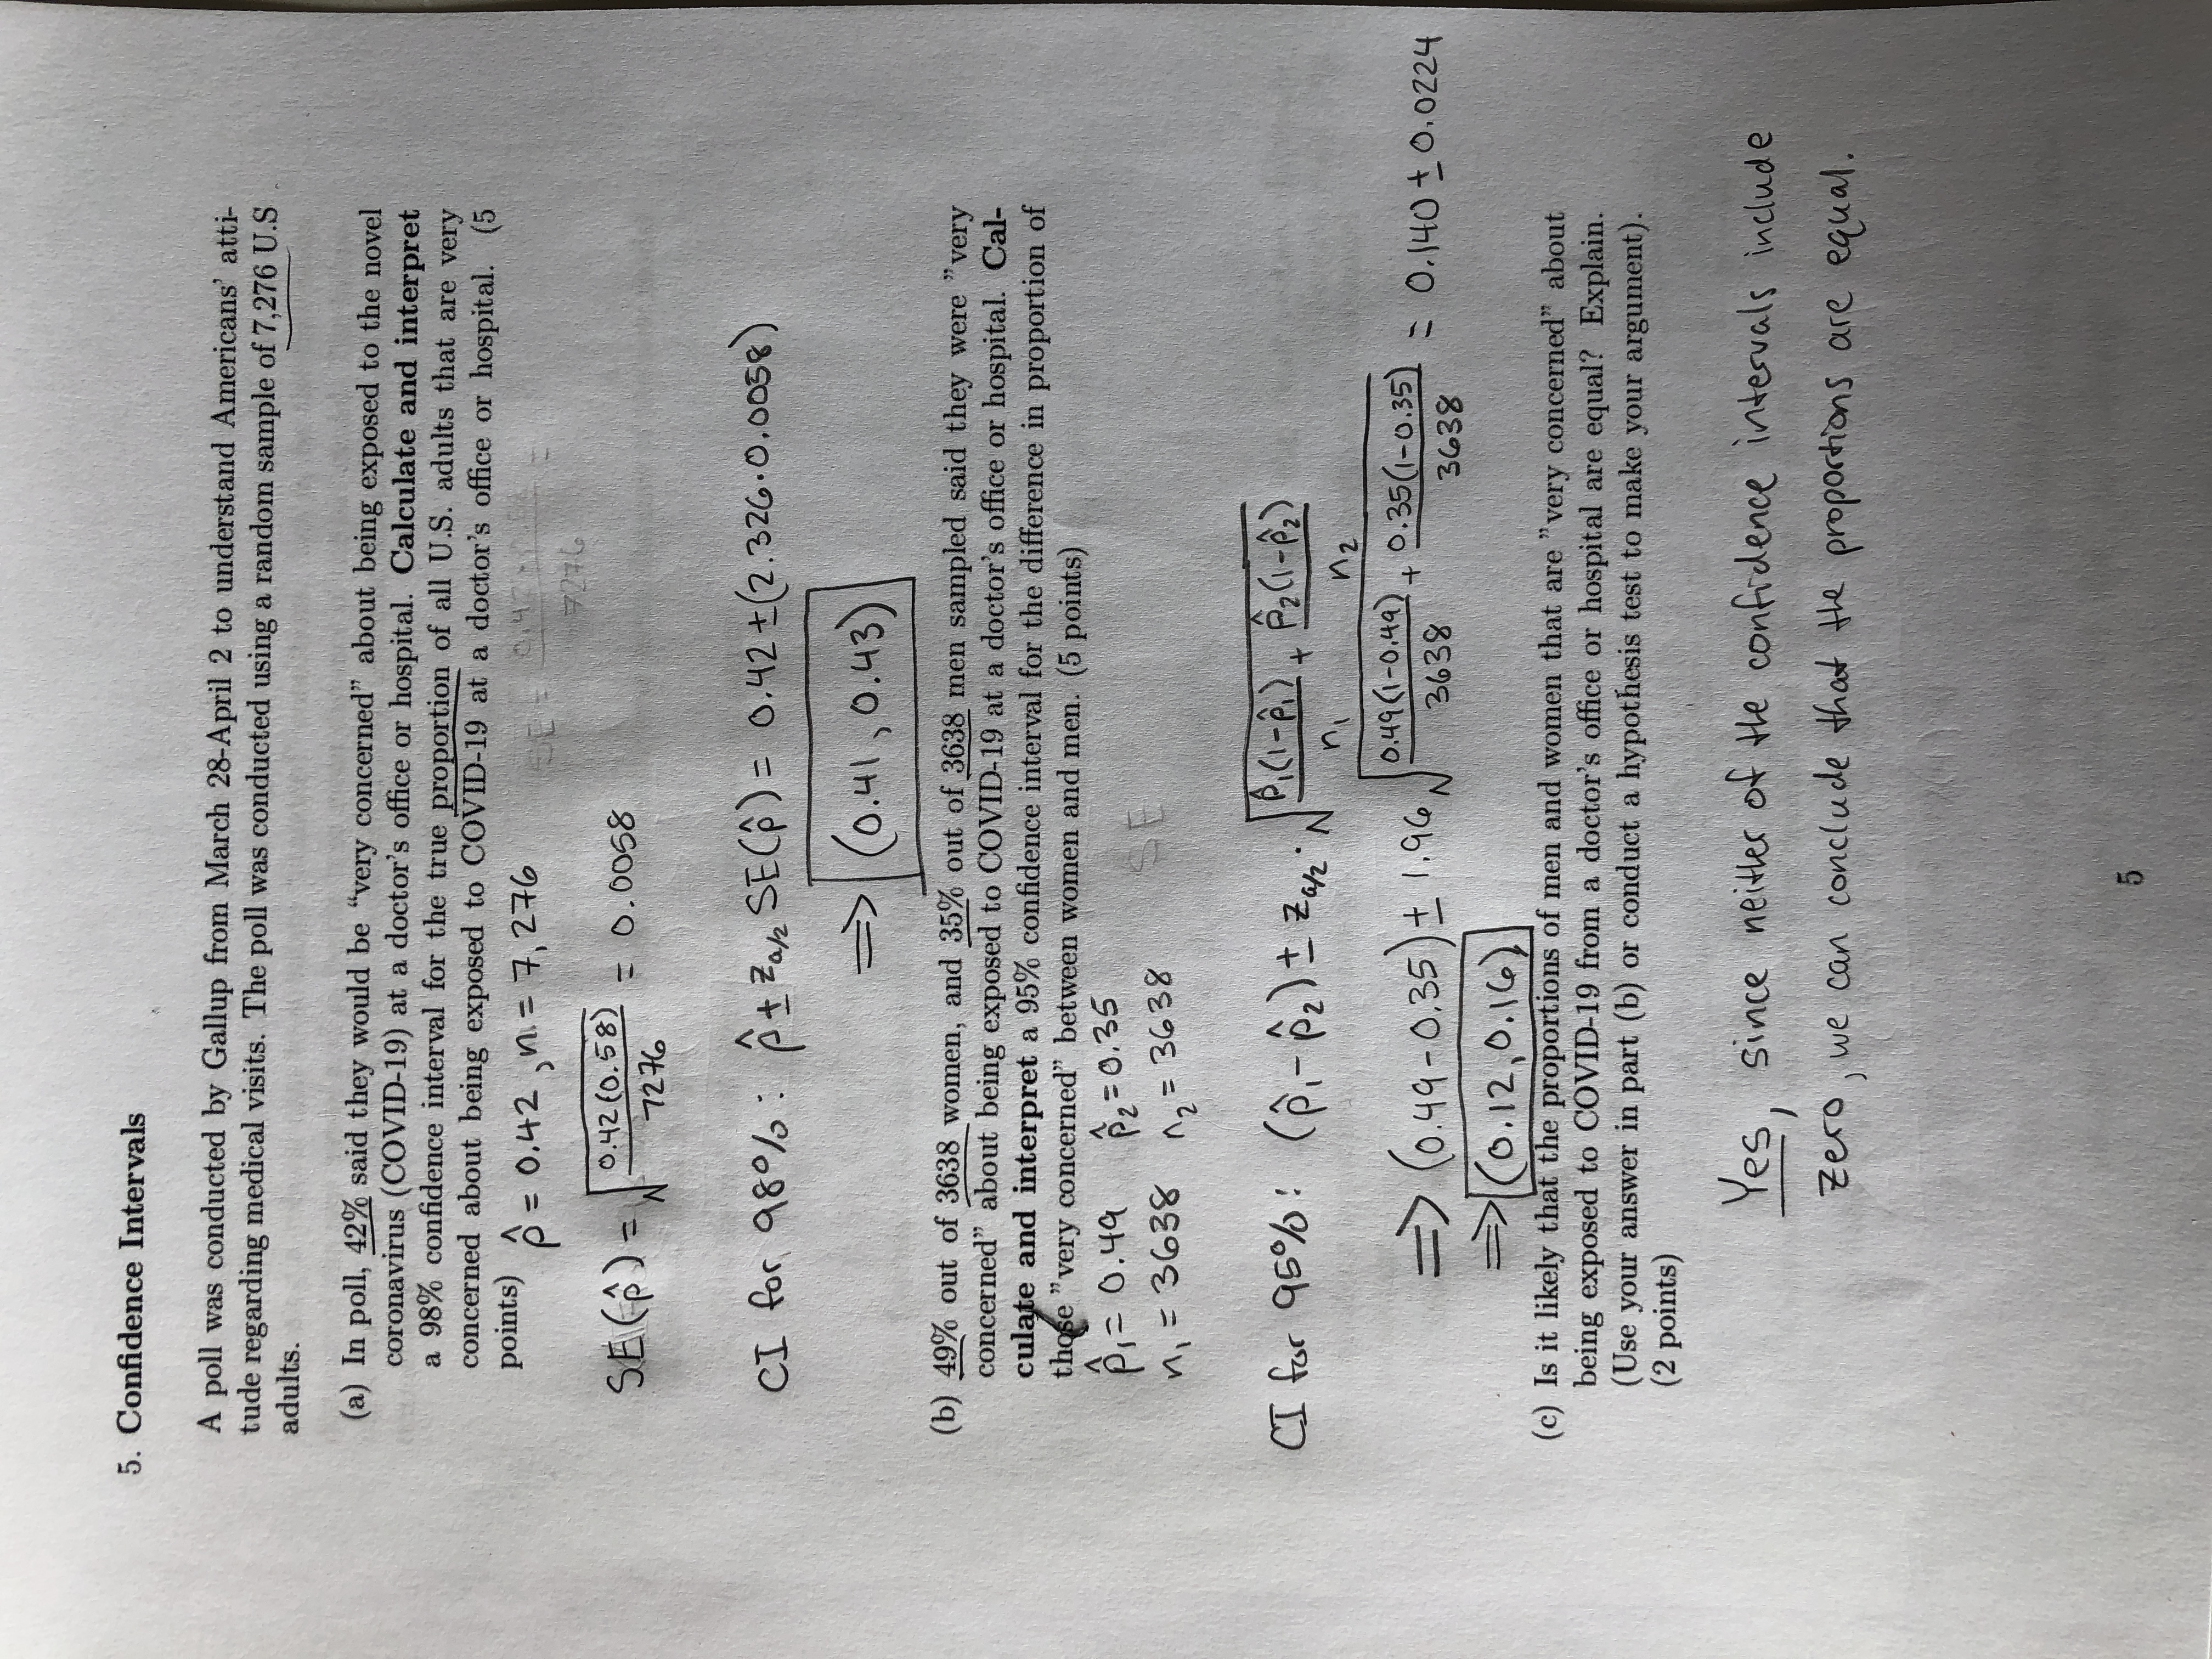 5. Confidence Intervals
A poll was conducted by Gallup from March 28-April 2 to understand Americans' atti-
tude regarding medical visits. The poll was conducted using a random sample of 7,276 U.S
adults.
(a) In poll, 42% said they would be "very concerned" about being exposed to the novel
coronavirus (COVID-19) at a doctor's office or hospital. Calculate and interpret
a 98% confidence interval for the true proportion of all U.S. adults that are very
concerned about being exposed to COVID-19 at a doctor's office or hospital. (5
points)
p̂ = 0.42, n = 7,276
SE(p̂) = √(0.42(0.58)/7276) = 0.0058
CI for 98%: p̂ ± z_{α/2} SE(p̂) = 0.42 ± (2.326·0.0058)
⟹ (0.41, 0.43)
(b) 49% out of 3638 women, and 35% out of 3638 men sampled said they were "very
concerned" about being exposed to COVID-19 at a doctor's office or hospital. Cal-
culate and interpret a 95% confidence interval for the difference in proportion of
those "very concerned" between women and men. (5 points)
p̂₁ = 0.49 p̂₂ = 0.35
SE
n₁ = 3638 n₂ = 3638
CI for 95%: (p̂₁ - p̂₂) ± z_{α/2} · √(p̂₁(1-p̂₁)/n₁ + p̂₂(1-p̂₂)/n₂)
⟹ (0.49-0.35) ± 1.96 √(0.49(1-0.49)/3638 + 0.35(1-0.35)/3638) = 0.140 ± 0.0224
⟹ (0.12, 0.16)
(c) Is it likely that the proportions of men and women that are "very concerned" about
being exposed to COVID-19 from a doctor's office or hospital are equal? Explain.
(Use your answer in part (b) or conduct a hypothesis test to make your argument).
(2 points)
Yes, since neither of the confidence intervals include
zero, we can conclude that the proportions are equal.
5